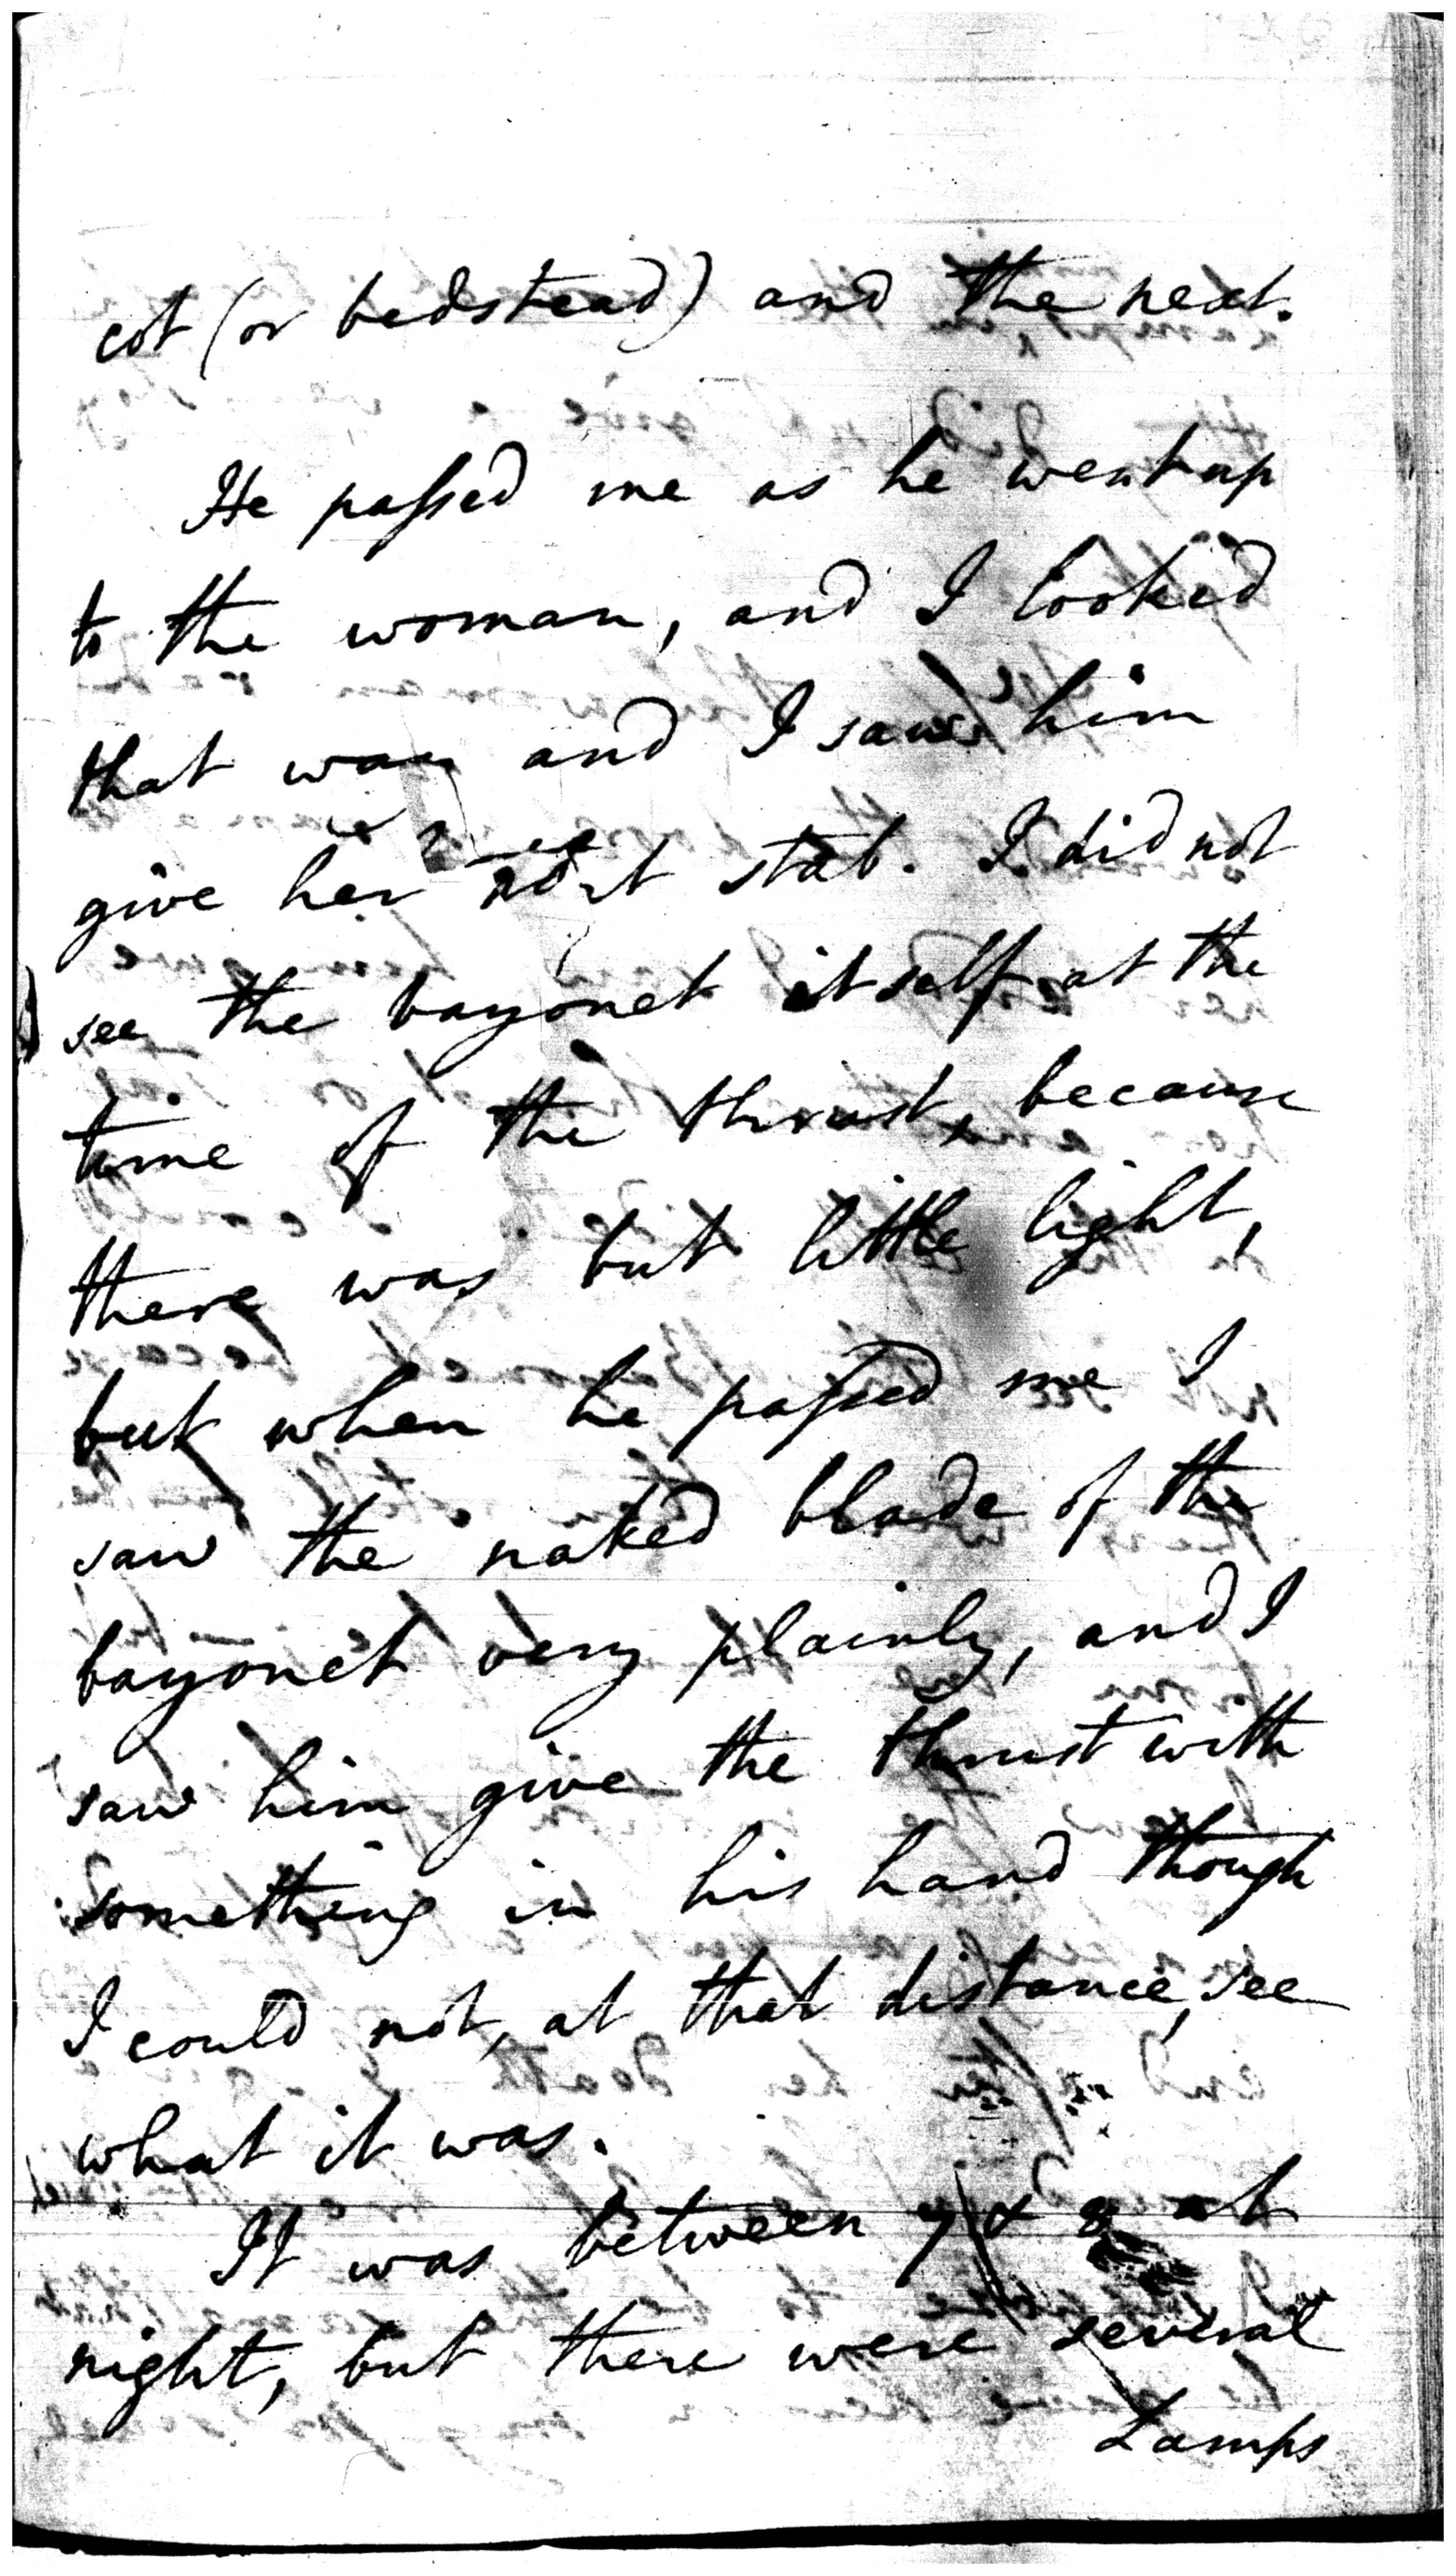 cot (or bedstead) and the next.
He passed me as he went up
to the woman, and I looked
that way and I saw him
give her stab. I did not
see the bayonet itself at the
time of the thrust, because
there was but little light,
but when he passed me I
saw the naked blade of the
bayonet very plainly, and I
saw him give the thrust with
something in his hand though
I could not, at that distance, see
what it was.
It was between 7 & 8 at
night, but there were several
Lamps